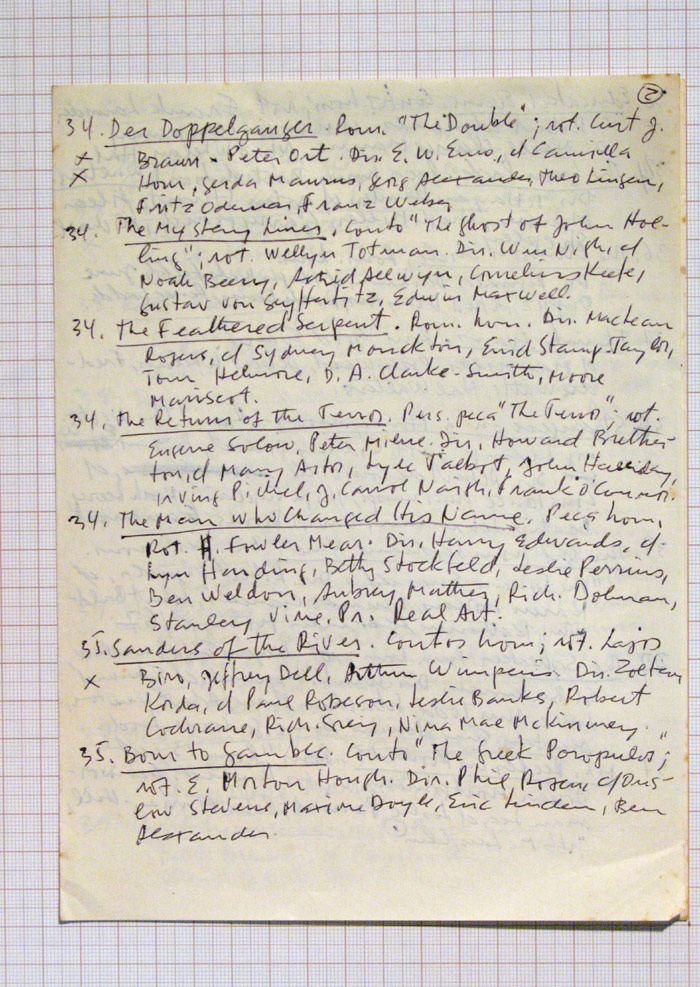 ②
34. Der Doppelganger. Rom. "The Double"; rot. Curt J.
x Braun - Peter Ort. Dir. E. W. Emo, c/ Camilla
x Horn, Gerda Maurus, Georg Alexander, Theo Lingen,
Fritz Odemar, Franz Weber
34. The Mystery Liner. Conto "The Ghost of John Hol-
ling"; rot. Wellyn Totman. Dir. Wm Nigh, c/
Noah Beery, Astrid Allwyn, Cornelius Keefe,
Gustav von Seyffertitz, Edwin Maxwell.
34. The Feathered Serpent. Rom. hom. Dir. Maclean
Rogers, c/ Sydney Monckton, Enid Stamp-Taylor,
Tom Helmore, D. A. Clarke-Smith, Moore
Marriscot.
34. The Return of the Terror. Pers. peça "The Terror"; rot.
Eugene Solow, Peter Milne. Dir. Howard Brether-
ton, c/ Mary Astor, Lyle Talbot, John Halliday,
Irving Pichel, J. Carrol Naish, Frank O'Connor.
34. The Man Who Changed His Name. Peça hom.
Rot. H. Fowler Mear. Dir. Harry Edwards, c/
Lyn Harding, Betty Stockfeld, Leslie Perrins,
Ben Weldon, Aubrey Mather, Rich. Dolman,
Stanley Vine. Pr. Real Art.
35. Sanders of the River. Contos hom; rot. Lajos
x Biro, Jeffrey Dell, Arthur Wimperis. Dir. Zoltan
Korda, c/ Paul Robeson, Leslie Banks, Robert
Cochrane, Rich. Grey, Nina Mae McKinney.
35. Born to Gamble. Conto "The Greek Poropulos";
rot. E. Morton Hough. Dir. Phil Rosen, c/ Ons-
low Stevens, Maxine Doyle, Eric Linden, Ben
Alexander.